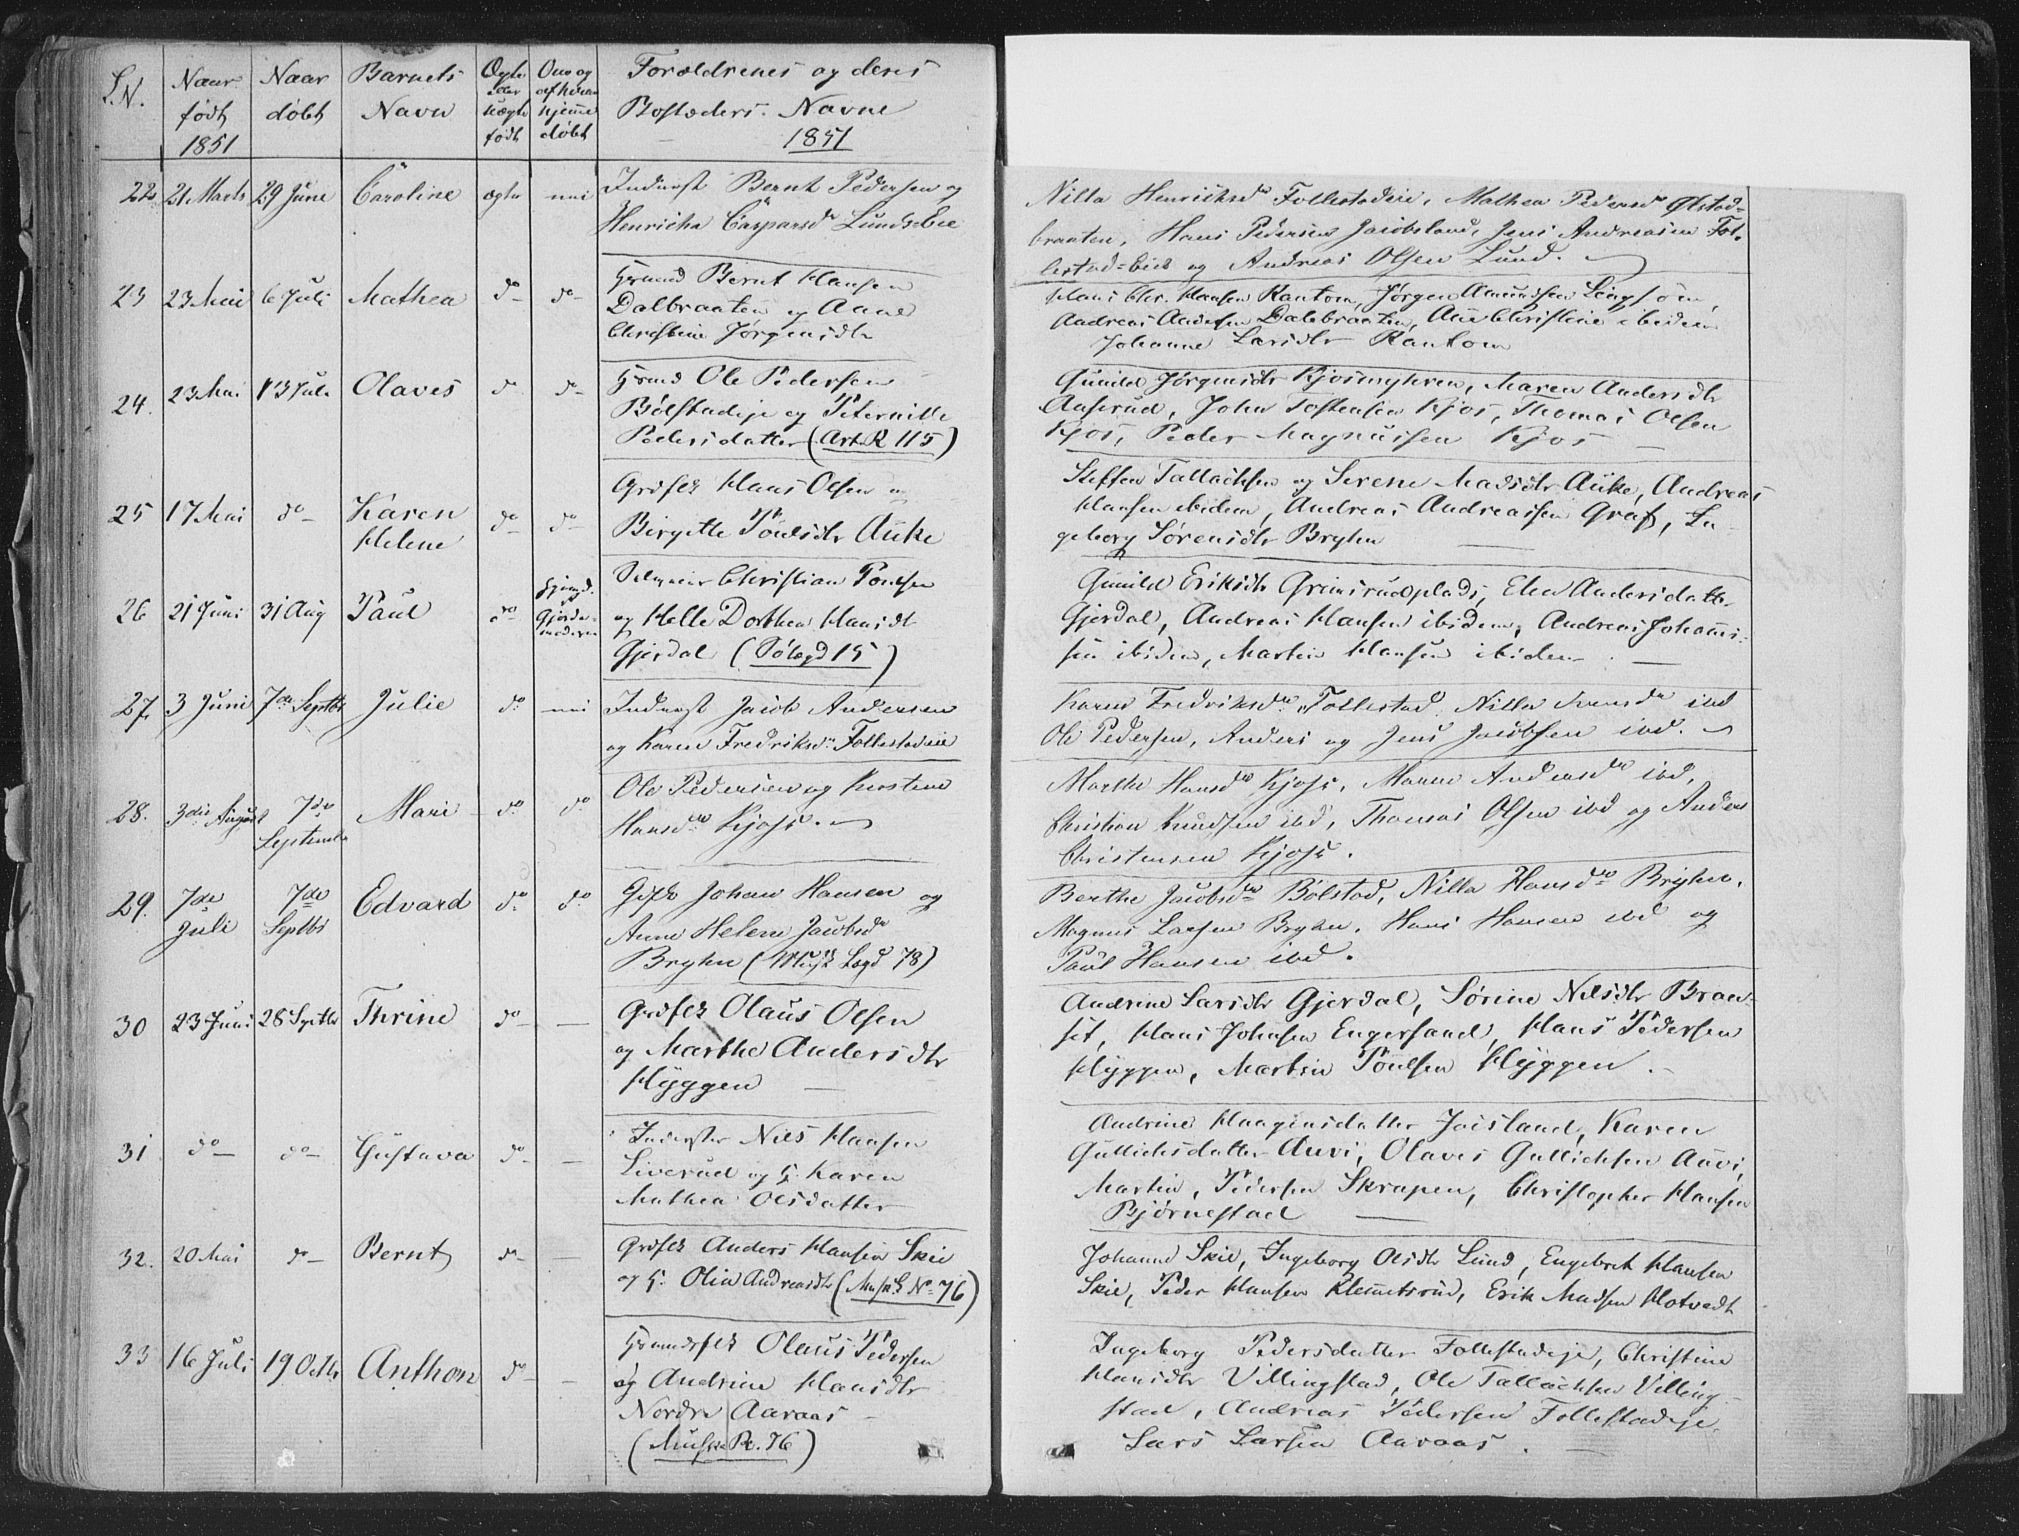 L.N.
Naar født 1851
Naar døbt
Barnets Navn
Ægte eller uægte født
Om og af hvem hjemme døbt
Forældrenes og deres
Bostæders Navne
1851
22 21 Marts 29 June Caroline ægte nei Inderst Bernt Pedersen og
Henricha Caspersd Lunds-Eie
Nilla Henriksd Follestadeie, Mathea Pedersd Ølstad-
braaten, Hans Pedersen Jacobsland, Jens Andreasen Fol-
lestad-Eie og Andreas Olsen Lund.
23 23 Mai 6 Juli Mathea do do Grmd Bernt Hansen
Dalbraaten og Anne
Christine Jørgensdtr
Hans Chr. Hansen Kantom, Jørgen Amundsen
Andreas Andersen Dalebraaten, Ane Christine ibidem
Johanne Larsdtr Kantom
24. 23 Mai 13 Juli Olaves do do Grmd Ole Pedersen
Bølstadeje og Peternille
Pedersdatter (Art. R 115)
Gunild Jørgensdtr Kjosmyhren, Maren Andersdtr
Aaserud, John Tostensen Kjos, Thomas Olsen
Kjos, Peder Magnussen Kjos
25 17 Mai do Karen Helene do do Grdflk Hans Olsen og
Birgitte Poulsdtr Auke
Steffen Tallachsen og Serene Madsdtr Auke, Andreas
Hansen ibidem, Andreas Andreassen Graf, In-
geborg Sørensdtr Bryhn
26 21 Juni 31 Aug Paul do hjemd. af Gjorde-moderen Selveier Christian Poulsen
og Helle Dorthea Hansdt
Gjerdal (Sølægd 15)
Gunild Eriksdtr Grimsrudplads, Elen Andersdatter
Gjerdal, Andreas Hansen ibidem, Andreas Johannis-
sen ibidem, Martin Hansen ibidem
27. 3 Juni 7de Septbr Julie do nei Inderst Jacob Andersen
og Karen Fredriksd Follestadeie
Karen Fredriksd Follestad, Nilla ibd
Ole Pedersen, Anders og Jens Jacobsen ibd.
28. 3die August 7de September Mari do do Ole Pedersen og Kirstine
Hansd Kjos.
Marthe Hansd Kjos, Maren Andersd ibd,
Christian Knudsen ibd, Thomas Olsen ibd og Anders
Christensen Kjos.
29. 7de Juli 7de Septbr Edvard do do Gifte Johan Hansen og
Anne Helene Jacobsd
Bryhn (Lægd 78)
Berthe Jacobsd Bølstad, Nilla Hansd Bryhn,
Magnus Larsen Bryhn, Hans Hansen ibd og
Paul Hansen ibd.
30 23 Juni 28 Septbr Thrine do Grdflk Olaus Olsen
og Marthe Andersdtr
Hyggen
Andrine Larsdtr Gjerdal, Sørine Nilsdtr Bran-
set, Hans Johnsen Engersand, Hans Pedersen
Hyggen, Martin Poulsen Hyggen.
31 do do Gustava do Inderster Nils Hansen
Liverud og H. Karen
Mathea Olsdatter
Andrine Haagensdatter Joisland, Karen
Gullichsdatter Auvi, Olaves Gullichsen Auvi,
Martin Pedersen Skrapen, Christopher Hansen
Bjørnestad
32. 20 Mai do Bernt do Grdflk Anders Hansen Skie
og H. Olia Andreasdtr (No 76)
Johanne Skie, Ingeborg Olsdtr Lund, Engebret Hansen
Skie, Peder Hansen Klemetsrud, Erik Madsen Hotvedt
33 16 Juli 19 Octbr Anthon do Grmdsflk Olaus Pedersen
og Andrine Hansdtr
Nordre Aaraas
(76)
Ingeborg Pedersdatter Follestadeje, Christine
Hansdtr Villingstad, Ole Tallachsen Villing-
stad, Andreas Pedersen Follestadeje,
Lars Larsen Aaraas.